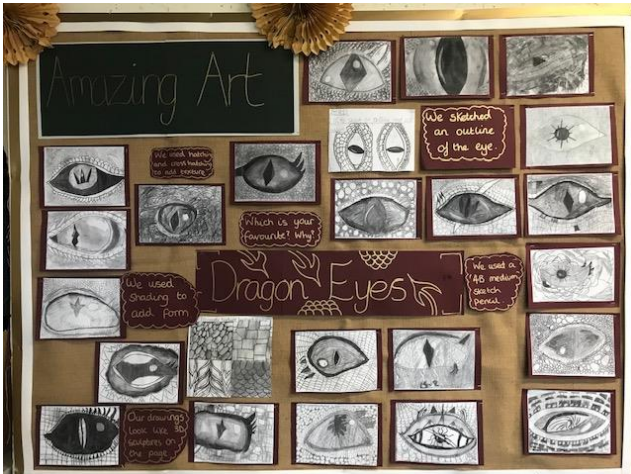 Amazing Art
We sketched
an outline
of the eye.
We used hatching
and cross hatching
to add texture.
Which is your
favourite? Why?
We used
shading to
add form
Dragon Eyes
We used a
4B medium
sketch
pencil.
Our drawings
look like 3D
sculptures on
the page.